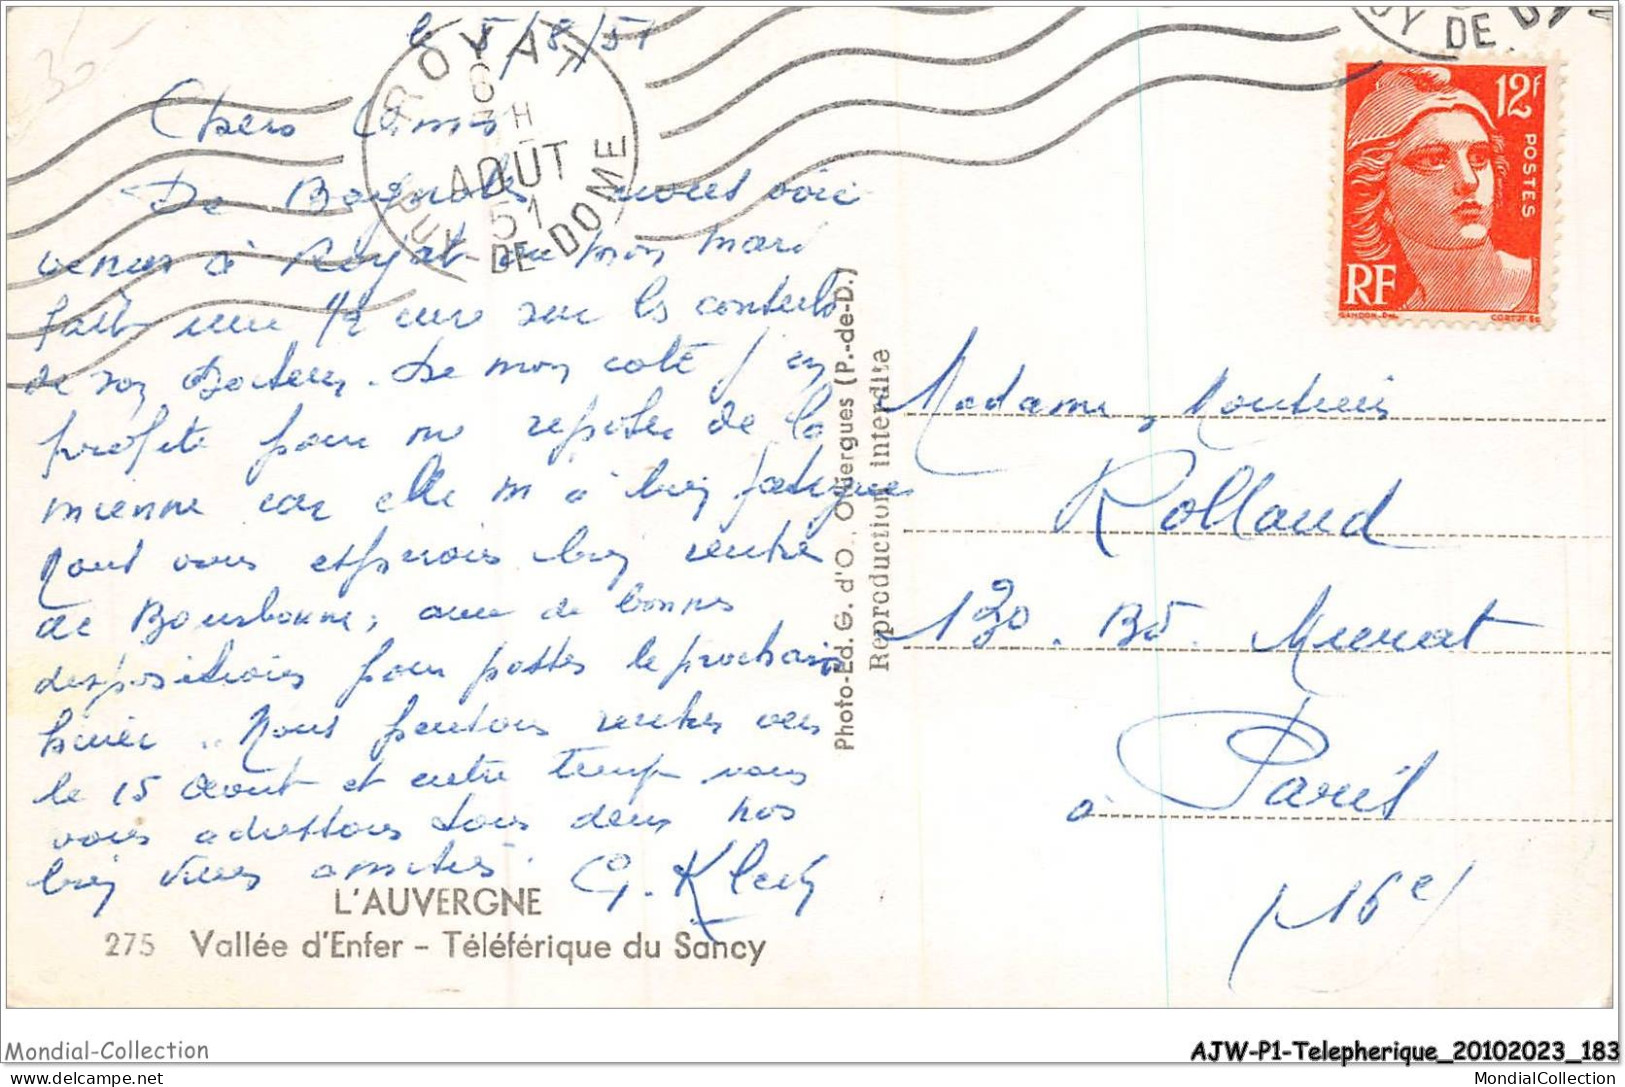 le 5/8/51
Chers Amis
De Bagnoles nous voici
venus à Royat où mon mari
fait une 1/2 cure sur les conseils
de son Docteur. De mon coté j'en
profite pour me reposer de la
mienne car elle m'a bien fatiguée
Nous vous espérons bien rentrés
de Bourbonne, avec de bonnes
dispositions pour passer le prochain
hiver. Nous pensons rentrer vers
le 15 Aout et entre temps nous
vous adressons tous deux nos
bien vives amitiés.
G. Klein
L'AUVERGNE
275 Vallée d'Enfer - Téléférique du Sancy
Photo-Ed. G. d'O., Olliergues (P.-de-D.)
Reproduction interdite
ROYAT
6
H
AOÛT
51
PUY DE DOME
PUY DE DOME
12F
POSTES
RF
GANDON. Del.
CORTOT. Sc
Madame
Rolland
130. Bd. Murat
à Paris
(16e)
Mondial-Collection
AJW-P1-Telepherique_20102023_183
MondialCollection